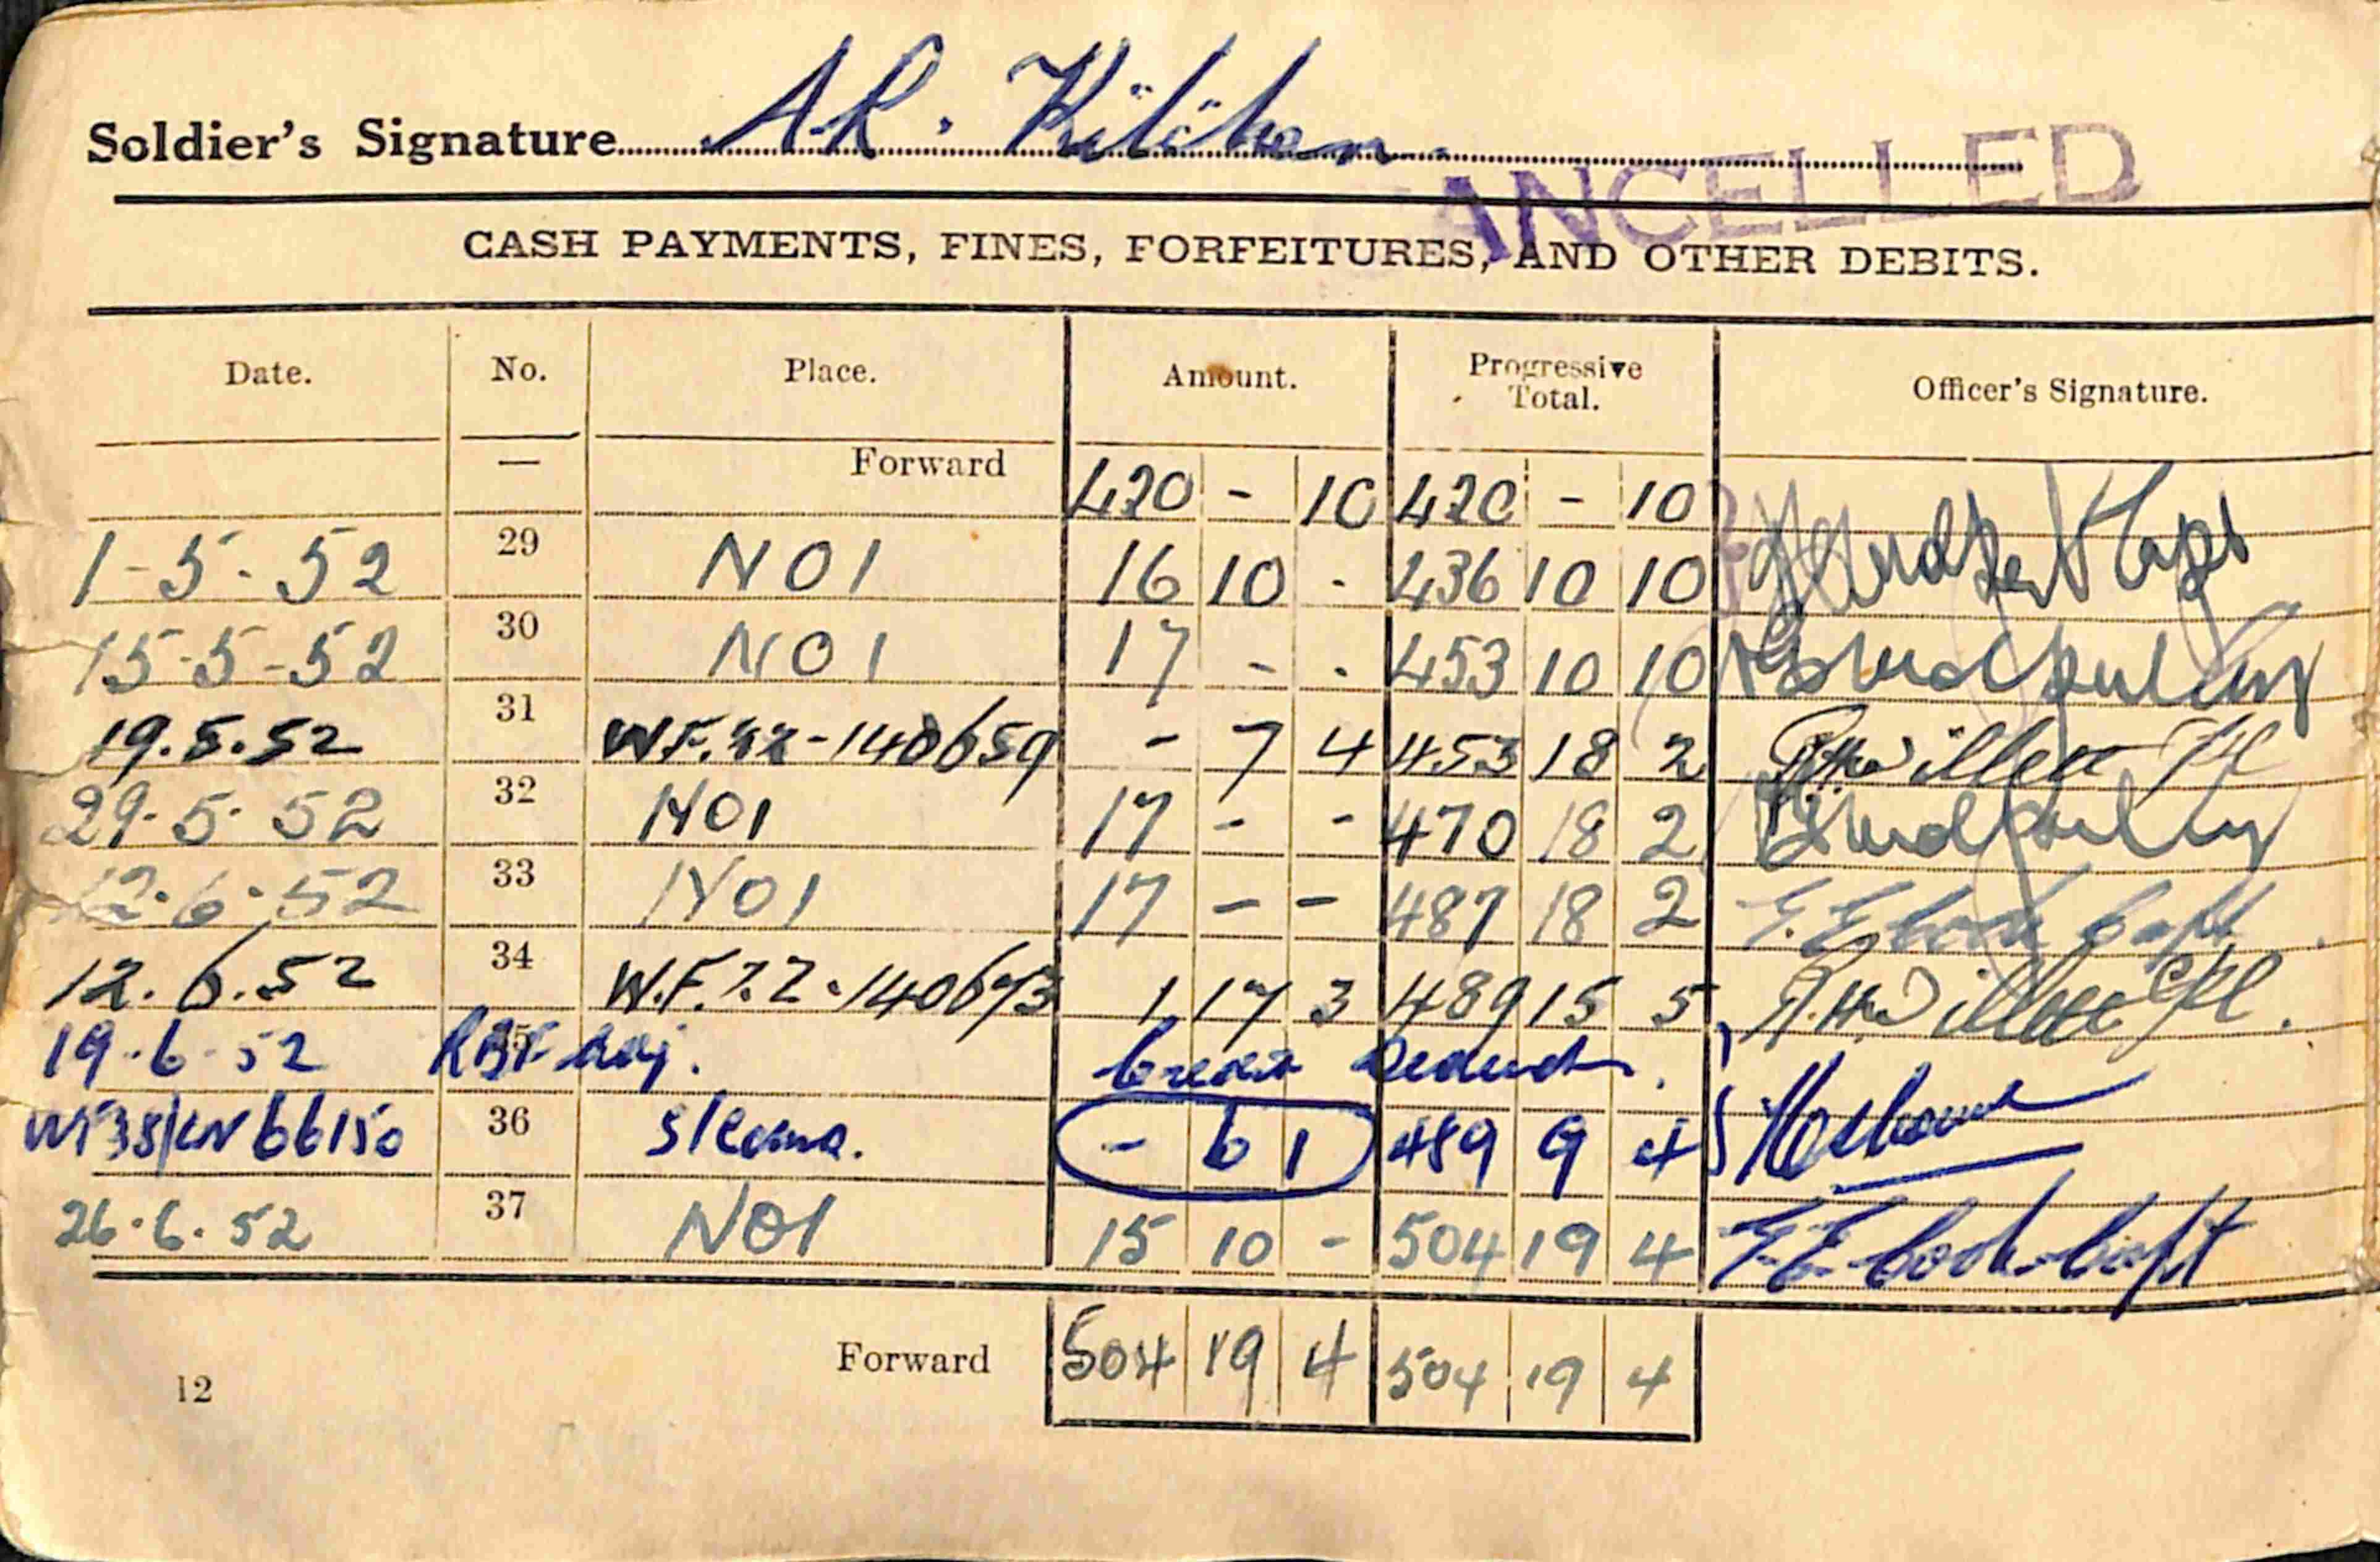 Soldier's Signature A.R. Kitchen
ANCELLED
CASH PAYMENTS, FINES, FORFEITURES, AND OTHER DEBITS.
Date. No. Place. Amount. Progressive Total. Officer's Signature.
— Forward 420 - 10 420 - 10
1-5-52 29 NO1 16 10 - 436 10 10 Capt
15-5-52 30 NO1 17 - - 453 10 10
19.5.52 31 - 7 4 453 18 2
29.5.52 32 NO1 17 - - 470 18 2
12.6.52 33 NO1 17 - - 487 18 2 E.E. Cook Capt.
12.6.52 34 1 17 3 489 15 5
19.6.52 Adj. Credit Deduct.
36 - 6 1 489 9 4
26.6.52 37 NO1 15 10 - 504 19 4 E.E. Cook Capt
Forward 504 19 4 504 19 4
12